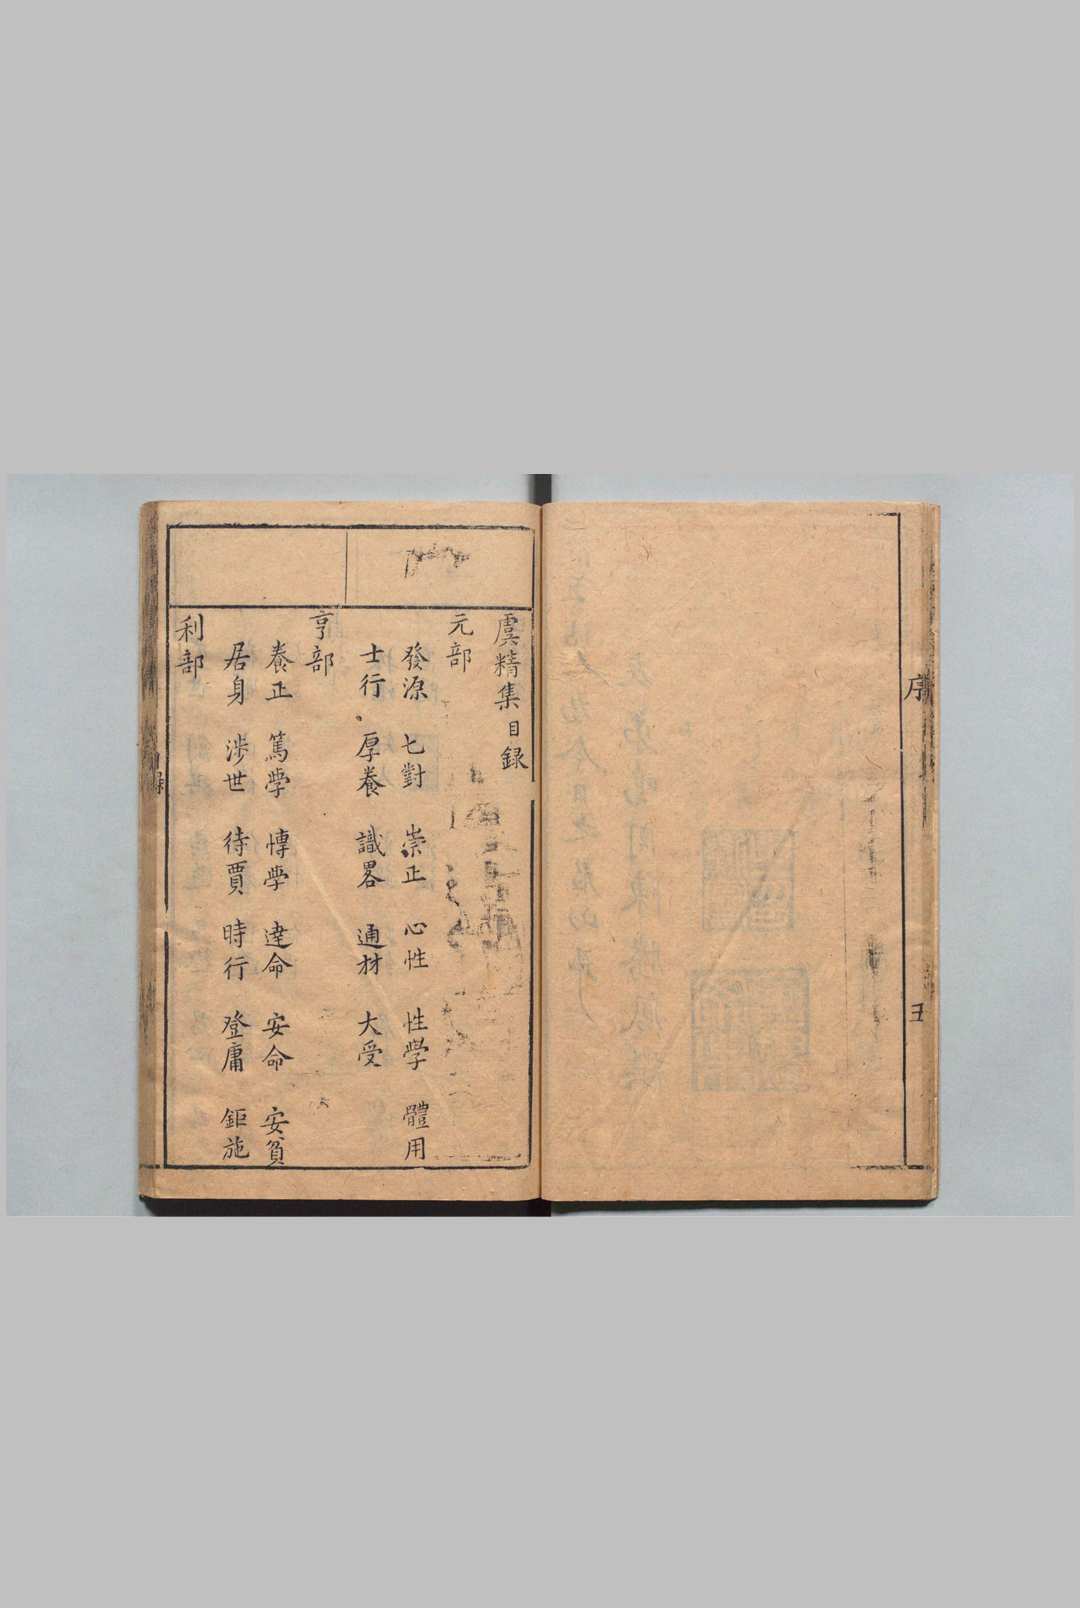 序
五
虞精集目録
元部
發源 七對 崇正 心性 性學 體用
士行 厚養 識畧 通材 大受
亨部
養正 篤學 博學 達命 安命 安貧
居身 渉世 待賈 時行 登庸 鉅施
利部